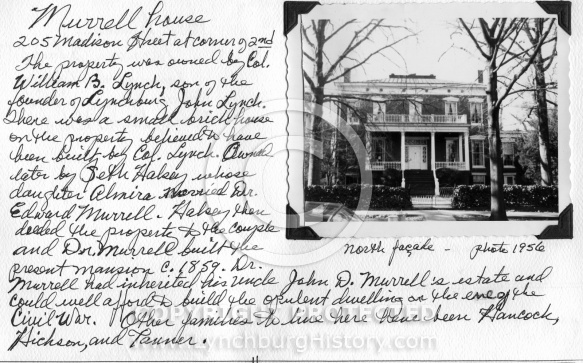 Murrell house
205 Madison Street at corner of 2nd
The property was owned by Col.
William B. Lynch, son of the
founder of Lynchburg John Lynch.
There was a small brick house
on the property believed to have
been built by Col. Lynch. Owned
later by Seth Halsey whose
daughter Almira married Dr.
Edward Murrell. Halsey then
deeded the property to the couple
and Dr. Murrell built the
present mansion c. 1859. Dr.
Murrell had inherited his uncle John D. Murrell's estate and
could well afford to build the opulent dwelling on the eve of the
Civil War. Other families to live here have been Hancock,
Hickson, and Tanner.
north façade - photo 1956
COPYRIGHT PROTECTED
www.LynchburgHistory.com